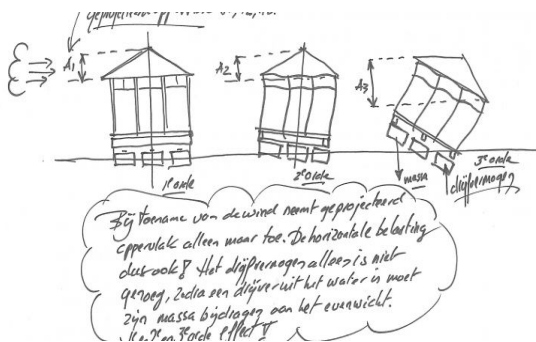 geprojecteerd
A1
A2
A3
1e orde
2e orde
massa
3e orde
drijfvermogen
Bij toename van de wind neemt geprojecteerd
oppervlak alleen maar toe. De horizontale belasting
dus ook! Het drijfvermogen alleen is niet
genoeg, zodra een drijver uit het water is moet
zijn massa bijdragen aan het evenwicht.
2e en 3e orde effect!